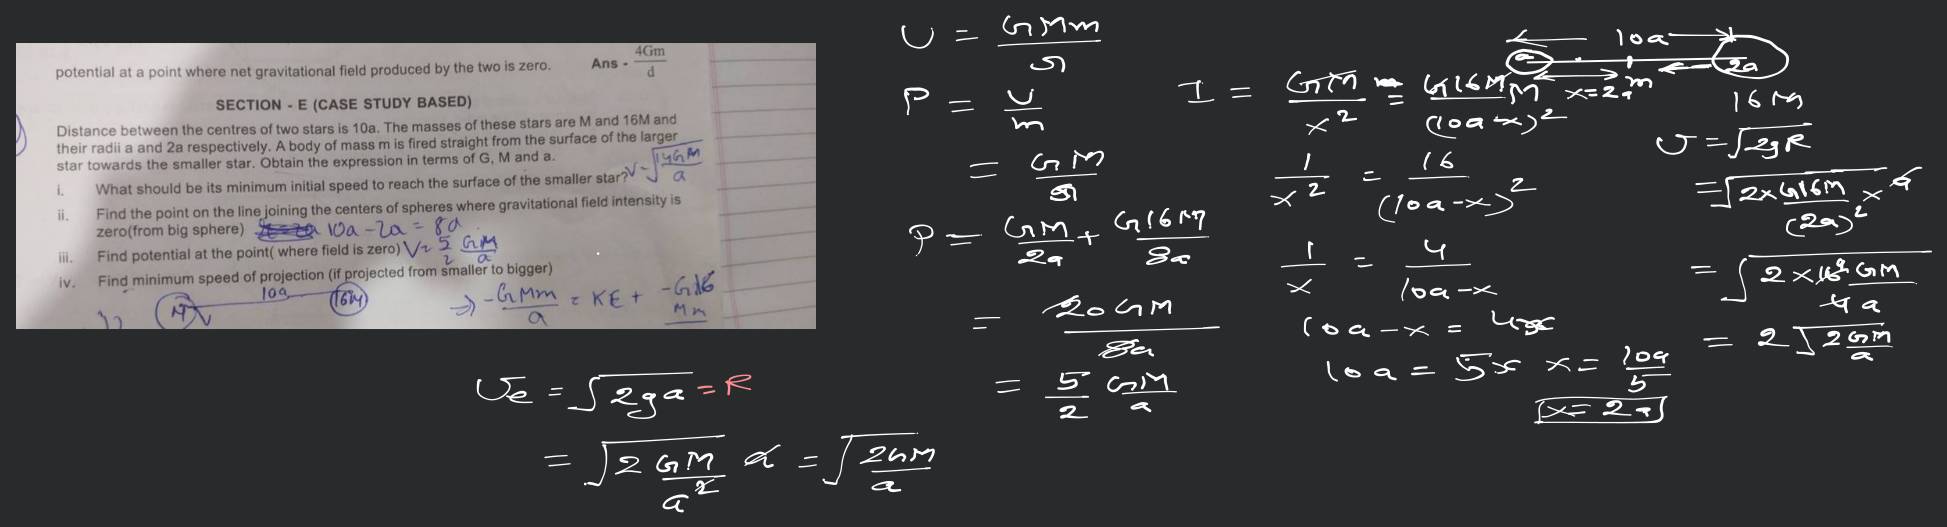 potential at a point where net gravitational field produced by the two is zero. Ans - 4Gm/d
SECTION - E (CASE STUDY BASED)
Distance between the centres of two stars is 10a. The masses of these stars are M and 16M and
their radii a and 2a respectively. A body of mass m is fired straight from the surface of the larger
star towards the smaller star. Obtain the expression in terms of G, M and a.
i. What should be its minimum initial speed to reach the surface of the smaller star? V = √(14GM/a)
ii. Find the point on the line joining the centers of spheres where gravitational field intensity is
zero(from big sphere) 10a - 2a = 8a
iii. Find potential at the point( where field is zero) V = 5/2 GM/a
iv. Find minimum speed of projection (if projected from smaller to bigger)
10a
M 16M
⇒ -GMm/a = KE + -G16Mm
Ue = √2ga = R
= √(2 GM/a² a) = √(2GM/a)
U = GMm/r
P = U/m
= GM/r
P = GM/2a + G16M/8a
= 20GM/8a
= 5/2 GM/a
I = GM/x² = G16M/(10a-x)²
1/x² = 16/(10a-x)²
1/x = 4/(10a-x)
10a - x = 4x
10a = 5x x = 10a/5
x = 2a
10a
a 2a
x = 2a m
16M
U = √2gR
= √(2 × G16M/(2a)² × a)
= √(2 × 16 GM/4a)
= 2√(2GM/a)